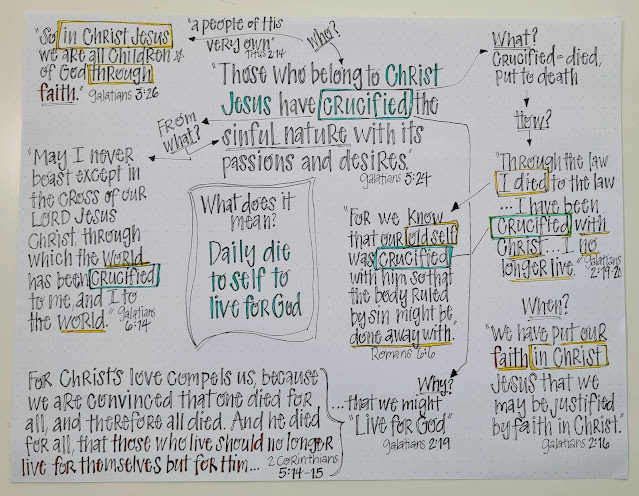 "So in Christ Jesus
we are all children
of God through
faith." Galatians 3:26
"a people of His
very own"
Titus 2:14
Who?
"Those who belong to Christ
Jesus have crucified the
sinful nature with its
passions and desires."
Galatians 5:24
What?
Crucified = died,
put to death
How?
"Through the law
I died to the law
...I have been
crucified with
Christ...I no
longer live." Galatians
2:19-20
From
what?
"May I never
boast except in
the cross of our
LORD Jesus
Christ, through
which the world
has been crucified
to me, and I to
the world." Galatians
6:14
What does it
mean?
Daily die
to self to
live for God
"For we know
that our old self
was crucified
with him so that
the body ruled
by sin might be
done away with."
Romans 6:6
When?
"We have put our
faith in Christ
Jesus that we
may be justified
by faith in Christ."
Galatians 2:16
Why?
...that we might
"Live for God"
Galatians 2:19
For Christ's love compels us, because
we are convinced that one died for
all, and therefore all died. And he died
for all, that those who live should no longer
live for themselves but for Him... 2 Corinthians
5:14-15